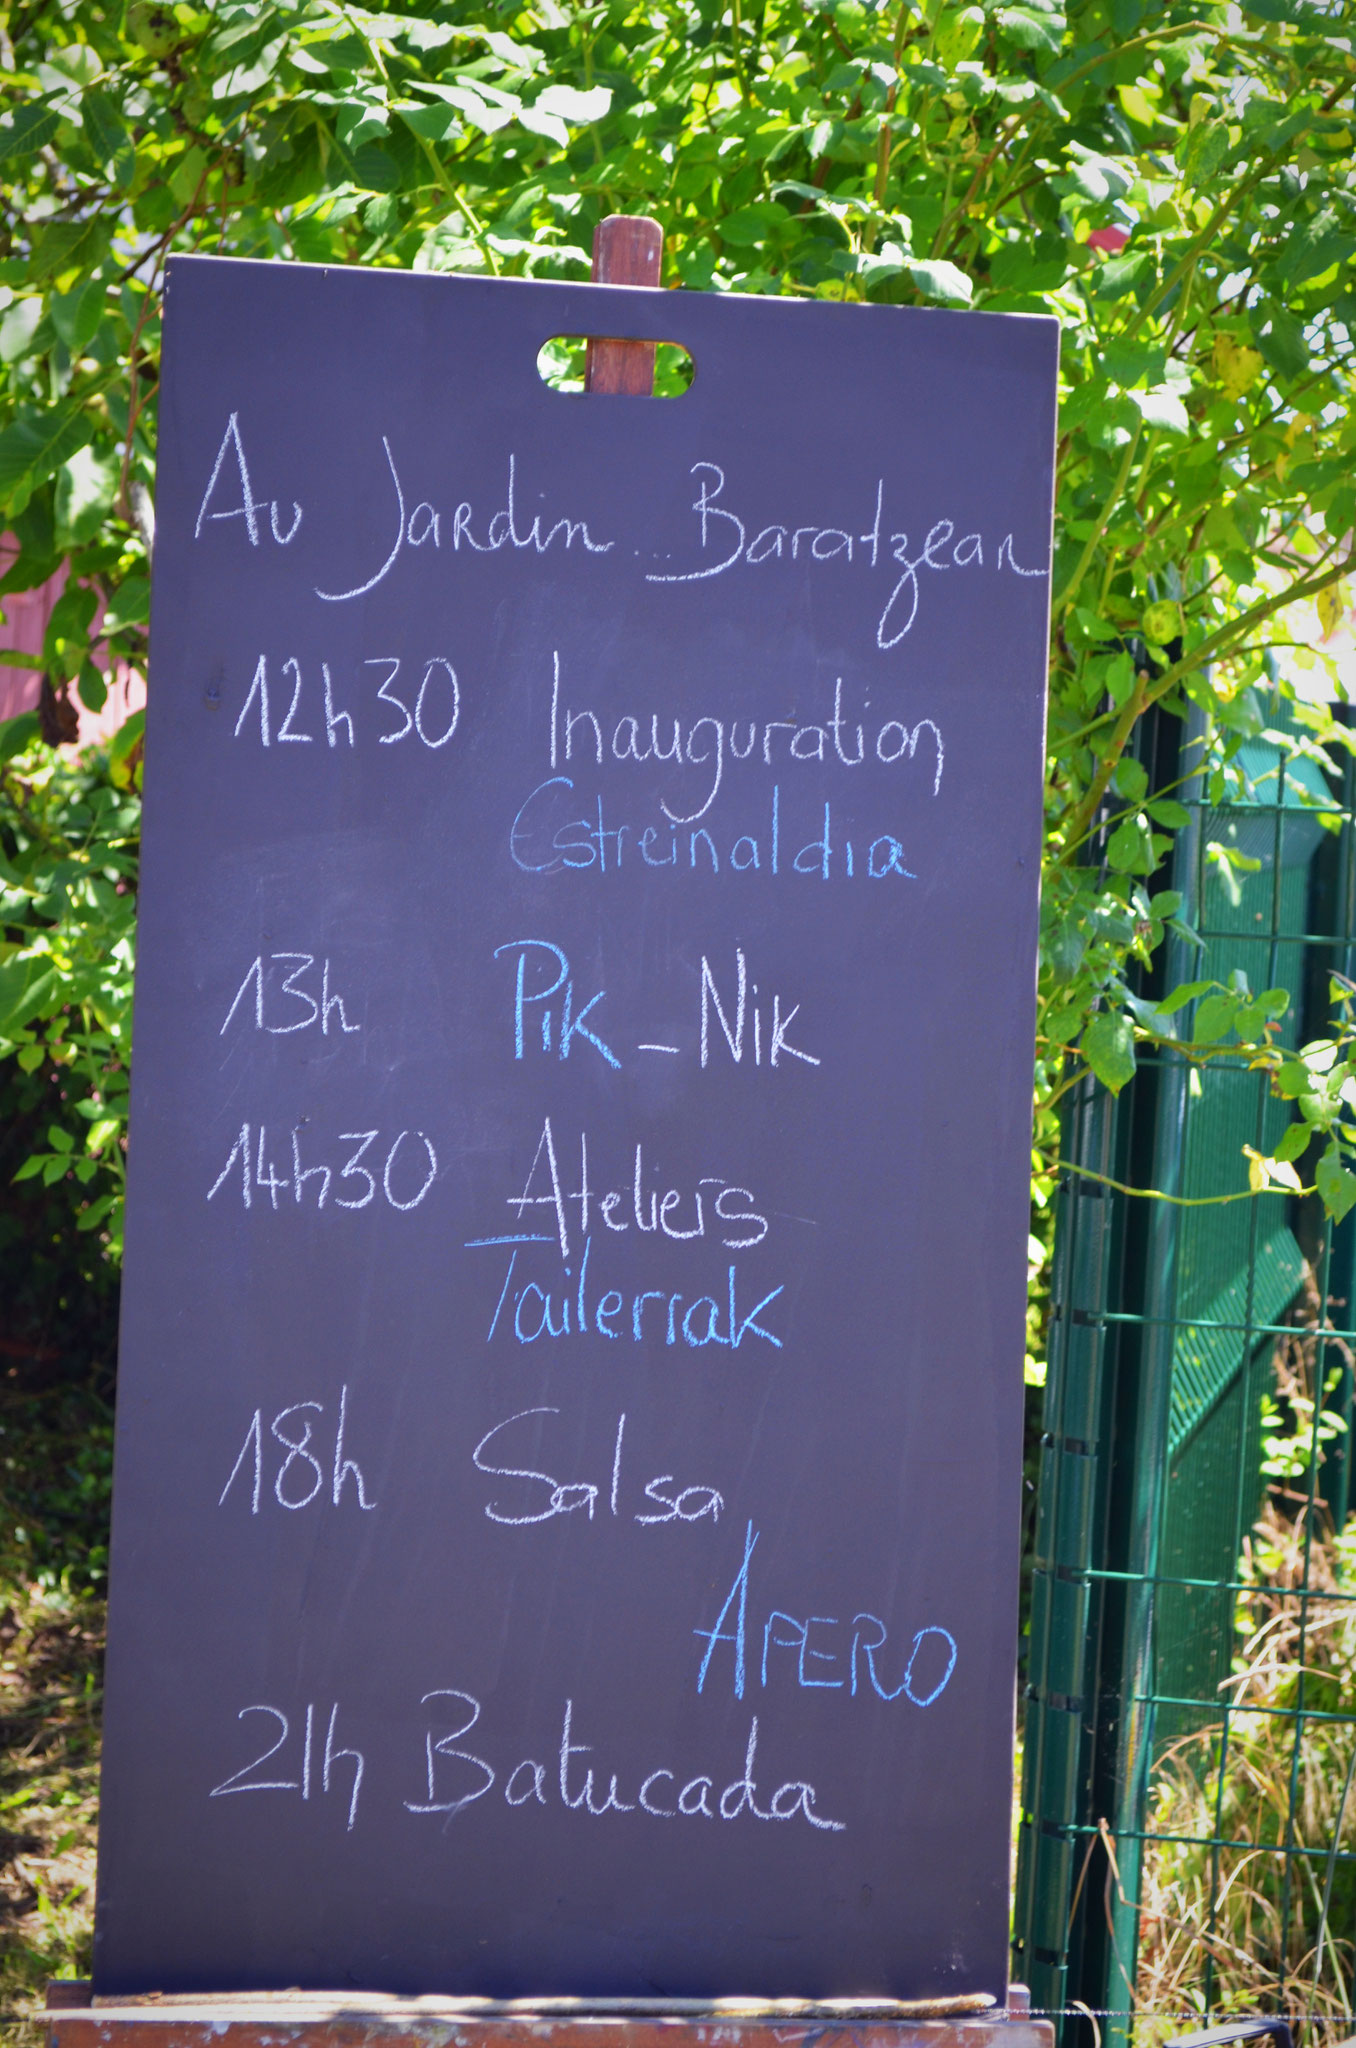 Au Jardin... Baratzean
12h30 Inauguration
Estreinaldia
13h Pik-Nik
14h30 Ateliers
Tailerrak
18h Salsa
APERO
21h Batucada